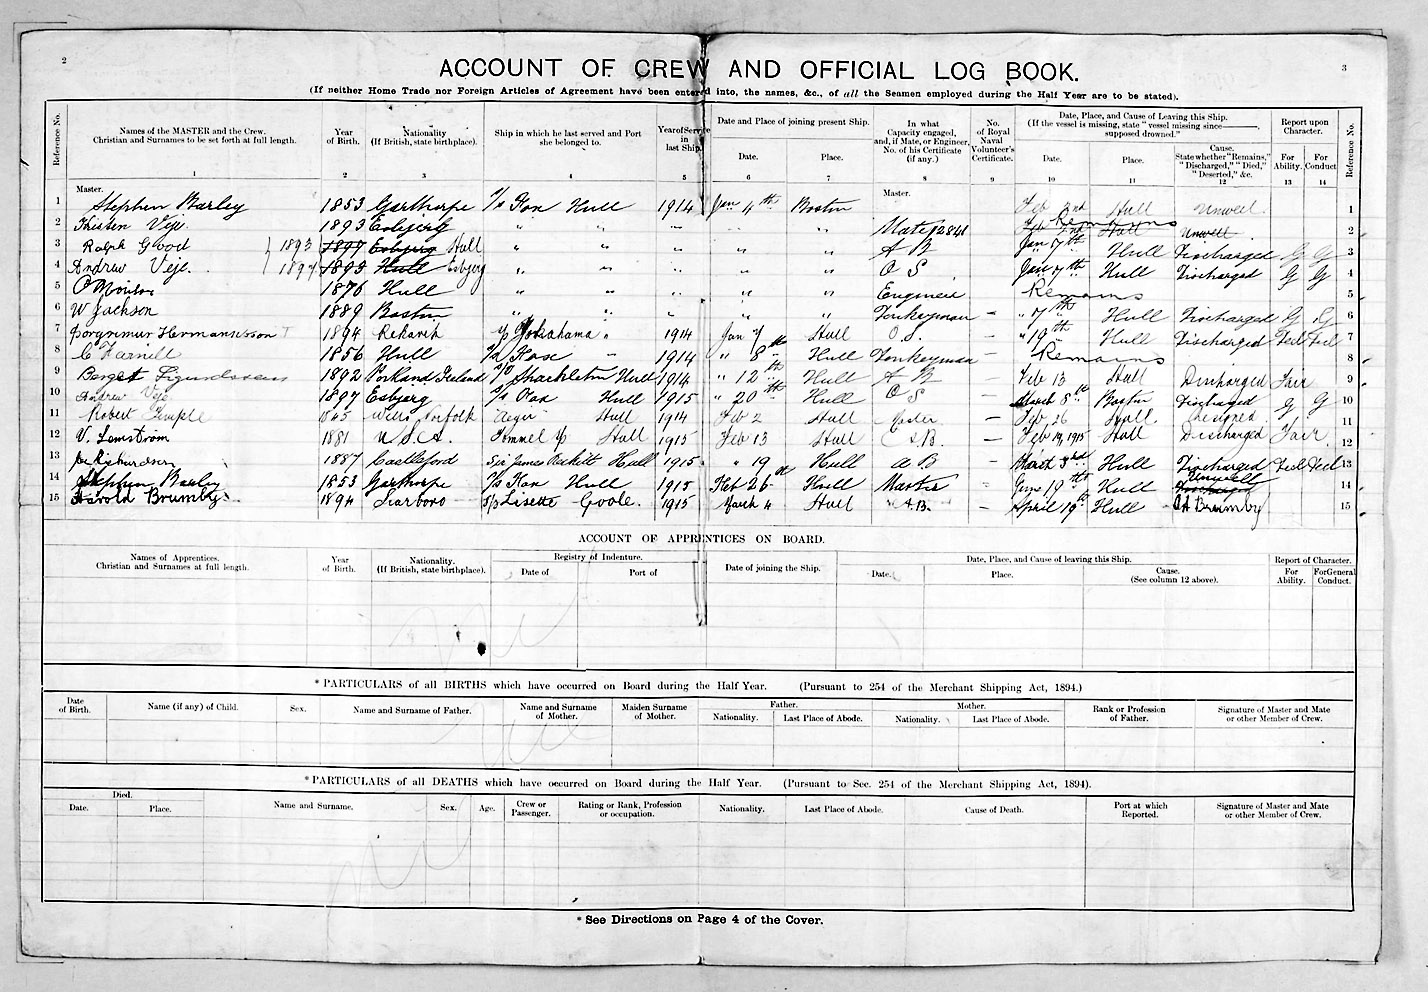 2
3
ACCOUNT OF CREW AND OFFICIAL LOG BOOK.
(If neither Home Trade nor Foreign Articles of Agreement have been entered into, the names, &c., of all the Seamen employed during the Half Year are to be stated).
Reference No. Names of the MASTER and the Crew. Christian and Surnames to be set forth at full length. Year of Birth. Nationality (If British, state birthplace). Ship in which he last served and Port she belonged to. Year of Service in last Ship. Date and Place of joining present Ship. Date. Place. In what Capacity engaged, and, if Mate, or Engineer, No. of his Certificate (if any.) No. of Royal Naval Volunteer's Certificate. Date, Place, and Cause of Leaving this Ship. (If the vessel is missing, state "vessel missing since ———, supposed drowned." Date. Place. Cause. State whether "Remains," "Discharged," "Died," "Deserted," &c. Report upon Character. For Ability. For Conduct Reference No.
1 2 3 4 5 6 7 8 9 10 11 12 13 14
Master. Master.
1 Stephen Barley 1853 Garthorpe Hull 1914 Jan 4th Boston Feb 2nd Hull Unwell 1
2 Kristen Veje 1893 Esbjerg " " " " " Mate Remains Feb 2nd Hull Unwell 2
3 Ralph Glood 1893 1897 Esbjerg Hull " " " " " A B Jan 7th Hull Discharged G G 3
4 Andrew Veje. 1897 1893 Hull Esbjerg " " " " " O S Jan 7th Hull Discharged G G 4
5 1876 Hull " " " " " Engineer Remains 5
6 W Jackson 1889 Boston " " " " " Donkeyman – " 7th Hull Discharged G G 6
7 1894 Yokohama " 1914 Jan 7 Hull O.S. – " 19th Hull Discharged 7
8 C Farnill 1856 Hull " 1914 " 8th Hull Donkeyman – Remains 8
9 1892 Hull 1914 " 12th Hull A B – Feb 13 Hull Discharged Fair 9
10 Andrew Veje 1897 Esbjerg Hull 1915 " 20th Hull O S March 8th Boston Discharged G G 10
11 Robert Temple Wells Norfolk Hull 1914 Feb 2 Hull Master – Feb 26 Hull. Resigned 11
12 1881 U.S.A. Hull 1915 Feb 13 Hull – Feb 19, 1915 Hull Discharged Fair 12
13 1887 Castleford Sir James Reckitt Hull 1915 " 19th Hull A B – March 3rd Hull Discharged 13
14 Stephen Barley 1853 Garthorpe Hull 1915 Feb 26 Hull Master – June 19th Hull Unwell Discharged 14
15 Harold Brumby 1894 Scarboro Lisette Goole. 1915 March 4 Hull A.B. – April 19th Hull H Brumby 15
ACCOUNT OF APPRENTICES ON BOARD.
Names of Apprentices. Christian and Surnames at full length. Year of Birth. Nationality. (If British, state birthplace). Registry of Indenture. Date of Port of Date of joining the Ship. Date, Place, and Cause of leaving this Ship. Date. Place. Cause. (See column 12 above). Report of Character. For Ability. For General Conduct.
Nil
* PARTICULARS of all BIRTHS which have occurred on Board during the Half Year. (Pursuant to 254 of the Merchant Shipping Act, 1894.)
Date of Birth. Name (if any) of Child. Sex. Name and Surname of Father. Name and Surname of Mother. Maiden Surname of Mother. Father. Nationality. Last Place of Abode. Mother. Nationality. Last Place of Abode. Rank or Profession of Father. Signature of Master and Mate or other Member of Crew.
Nil
* PARTICULARS of all DEATHS which have occurred on Board during the Half Year. (Pursuant to Sec. 254 of the Merchant Shipping Act, 1894).
Died. Date. Place. Name and Surname. Sex. Age. Crew or Passenger. Rating or Rank, Profession or occupation. Nationality. Last Place of Abode. Cause of Death. Port at which Reported. Signature of Master and Mate or other Member of Crew.
Nil
* See Directions on Page 4 of the Cover.